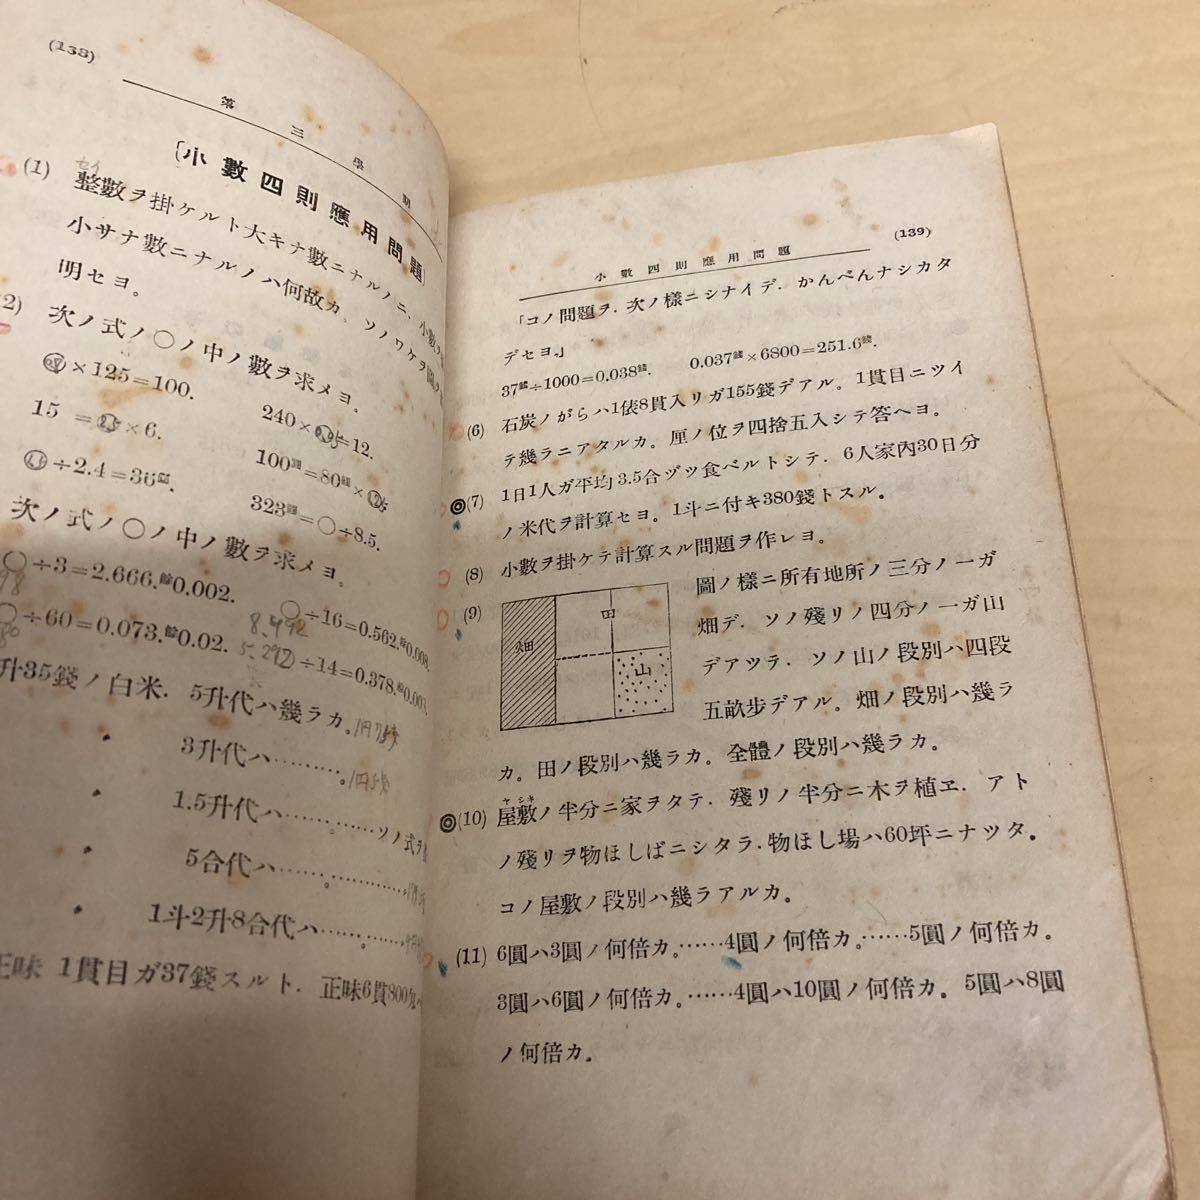 (138)
第三學期
〔小數四則應用問題〕
(1) 整數ヲ掛ケルト大キナ數ニナルノニ、小數ヲ
セイ
小サナ數ニナルノハ何故カ。ソノワケヲ圖デ
明セヨ。
(2) 次ノ式ノ○ノ中ノ數ヲ求メヨ。
×125=100.
240× ÷12.
15 = ×6.
100圓=80圓×
÷2.4=36
323圓=○÷8.5.
次ノ式ノ○ノ中ノ數ヲ求メヨ。
○÷3=2.666.餘0.002.
○÷16=0.562.餘0.008.
8.992
○÷60=0.073.餘0.02.
5.292
÷14=0.378.餘0.00
升35錢ノ白米. 5升代ハ幾ラカ。
3升代ハ………。
1.5升代ハ……。……ソノ式ヲ
5合代ハ……。……
1斗2升8合代ハ……。……
正味 1貫目ガ37錢スルト. 正味6貫800匁
小數四則應用問題
(139)
「コノ問題ヲ. 次ノ樣ニシナイデ. かんべんナシカタ
デセヨ。」
37錢÷1000=0.038錢.
0.037錢×6800=251.6錢.
(6) 石炭ノがらハ1俵8貫入リガ155錢デアル。1貫目ニツイ
テ幾ラニアタルカ。厘ノ位ヲ四捨五入シテ答ヘヨ。
◎(7) 1日1人ガ平均3.5合ヅツ食ベルトシテ. 6人家內30日分
ノ米代ヲ計算セヨ。1斗ニ付キ380錢トスル。
(8) 小數ヲ掛ケテ計算スル問題ヲ作レヨ。
(9) 圖ノ樣ニ所有地所ノ三分ノ一ガ
畑デ. ソノ殘リノ四分ノ一ガ山
デアツテ. ソノ山ノ段別ハ四段
五畝步デアル。畑ノ段別ハ幾ラ
カ。田ノ段別ハ幾ラカ。全體ノ段別ハ幾ラカ。
畑
田
山
◎(10) 屋敷ノ半分ニ家ヲタテ. 殘リノ半分ニ木ヲ植ヱ. アト
ヤシキ
ノ殘リヲ物ほしばニシタラ. 物ほし場ハ60坪ニナツタ。
コノ屋敷ノ段別ハ幾ラアルカ。
(11) 6圓ハ3圓ノ何倍カ。……4圓ノ何倍カ。……5圓ノ何倍カ。
3圓ハ6圓ノ何倍カ。……4圓ハ10圓ノ何倍カ。5圓ハ8圓
ノ何倍カ。